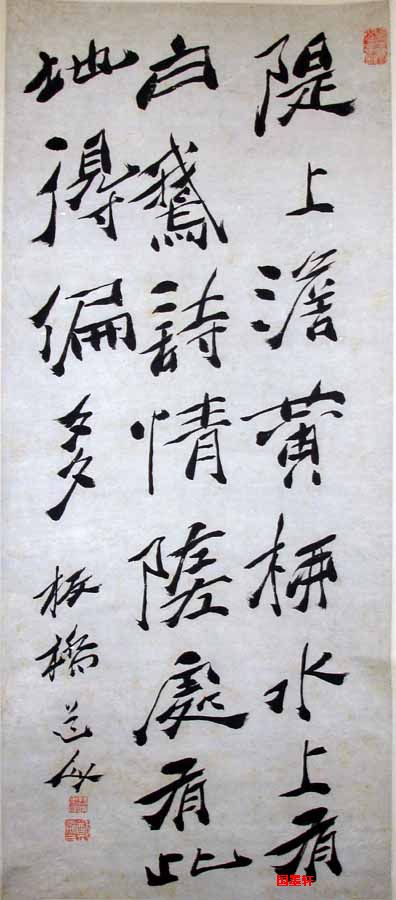 隄上澹黃柳水上有
白鵝詩情隨處有此
地得偏多
板橋道人
国墨轩